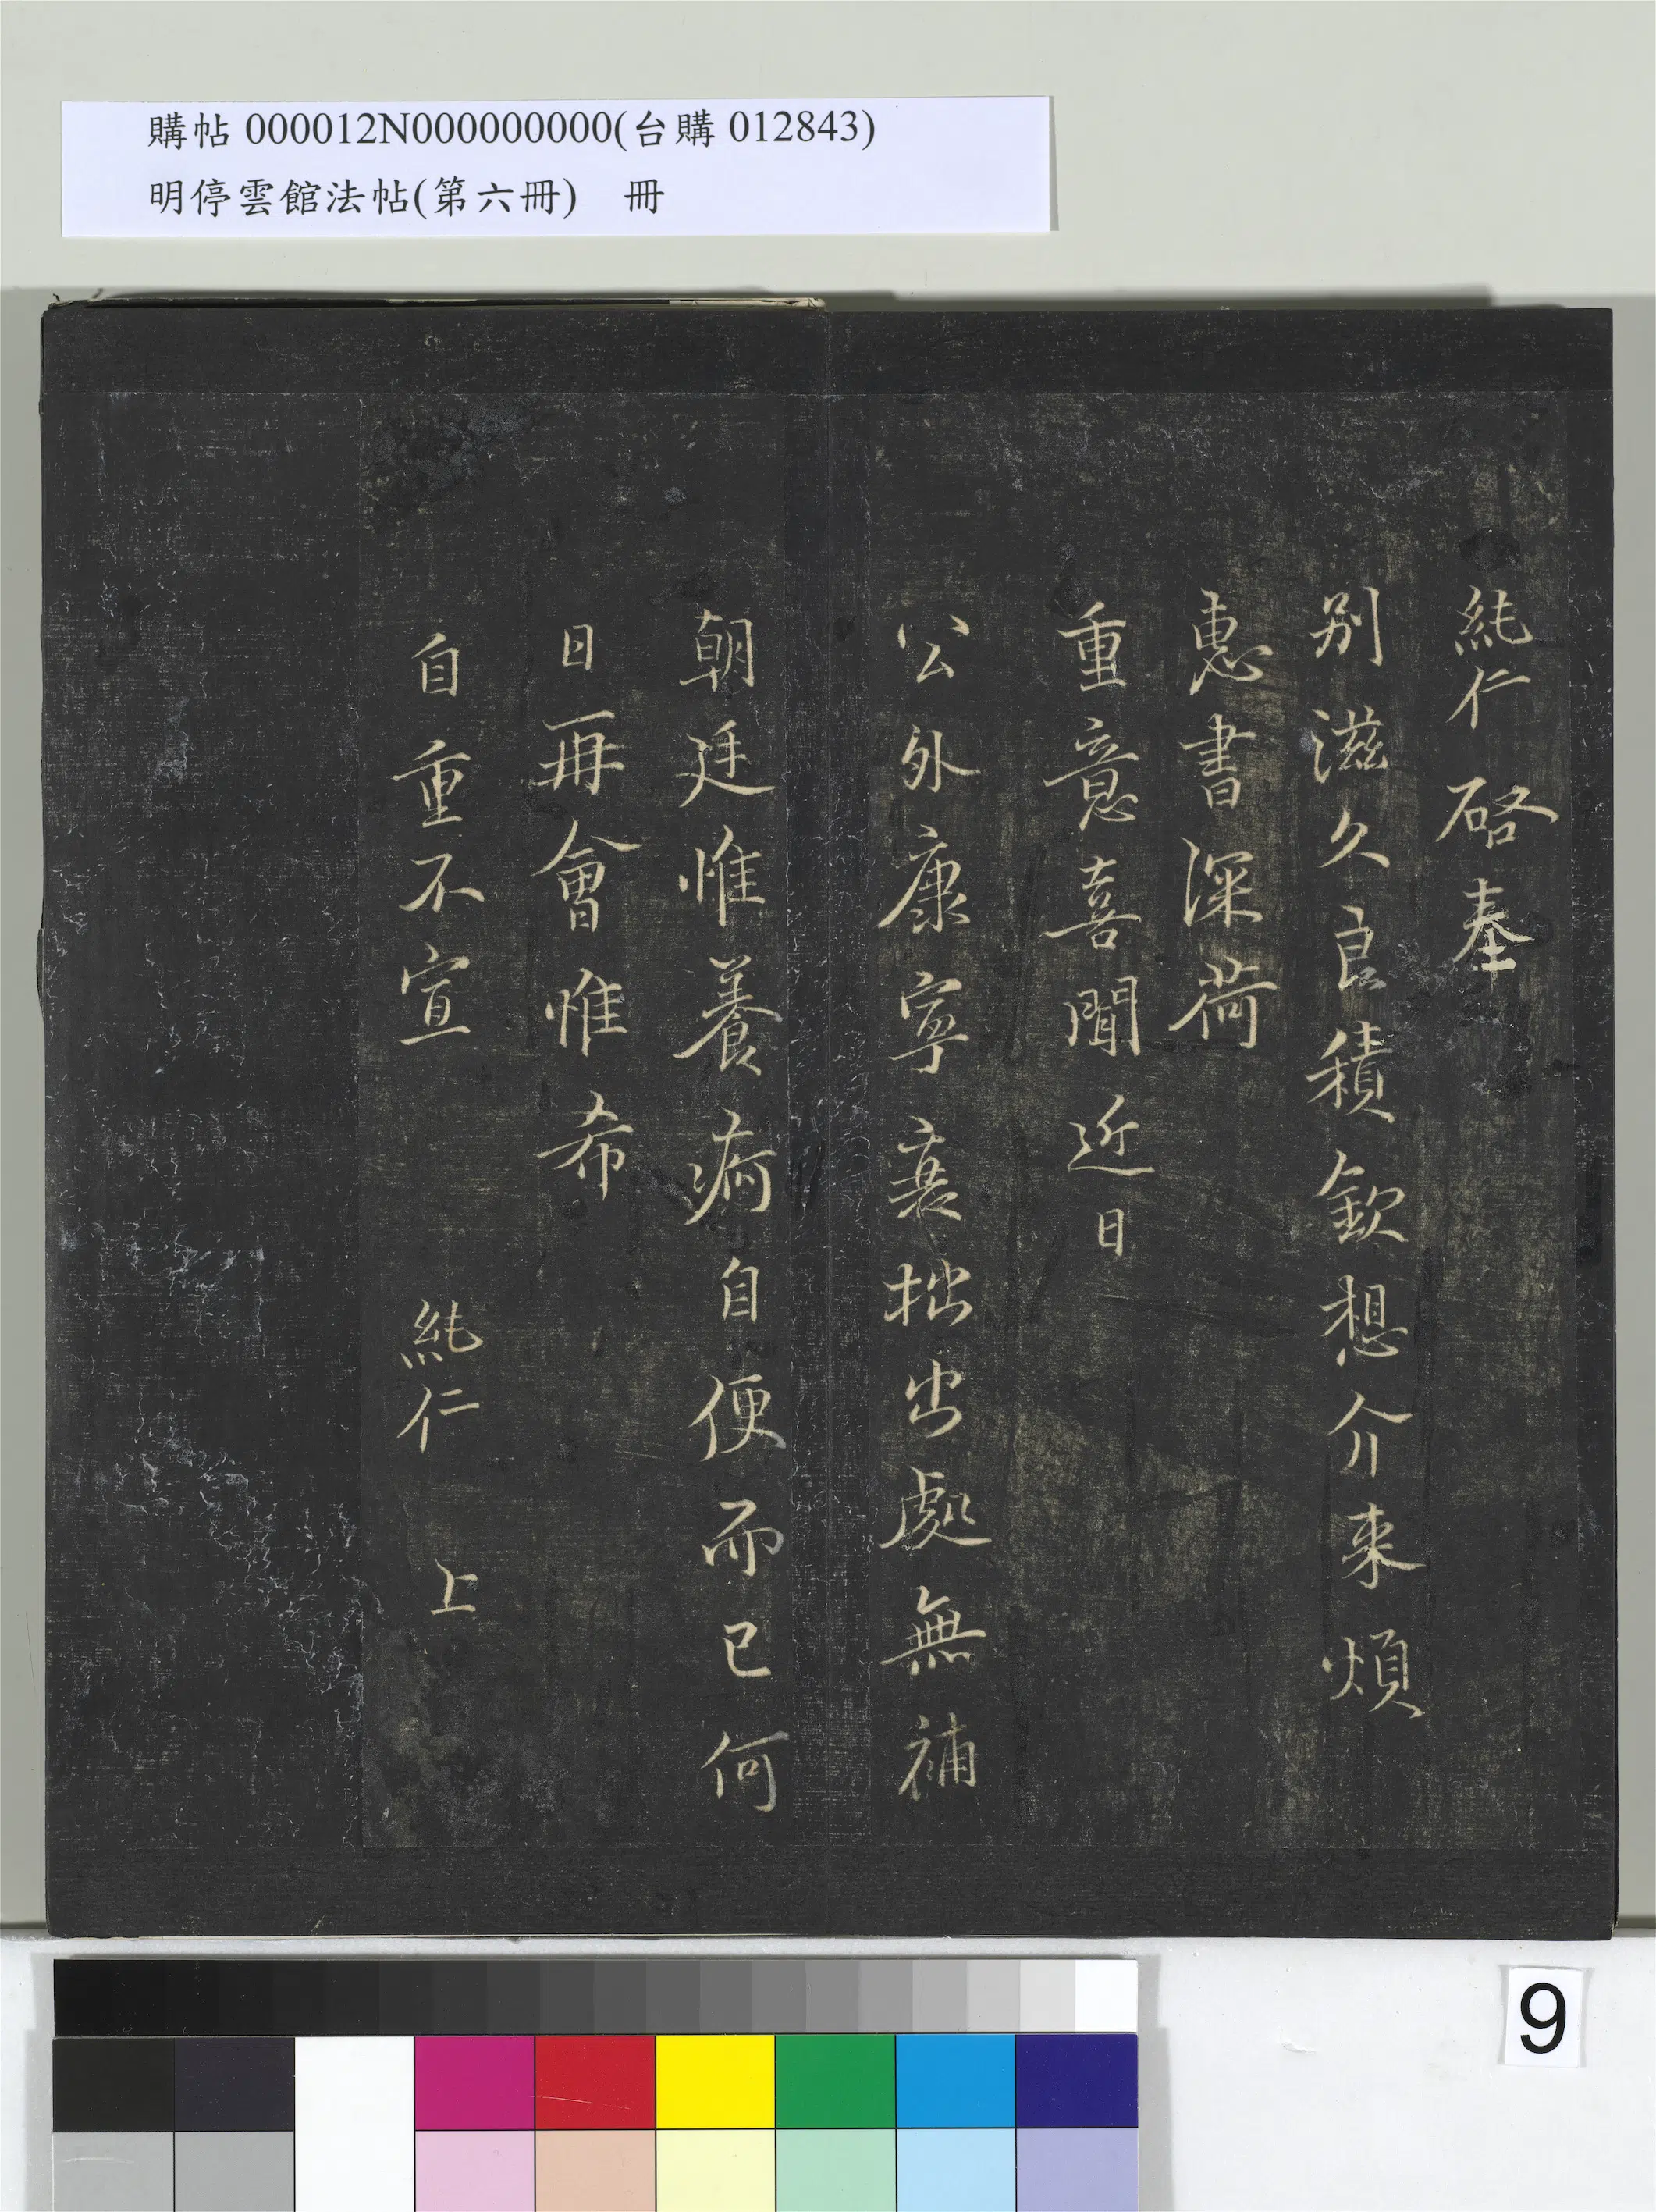 購帖 000012N000000000(台購 012843)
明停雲館法帖(第六冊) 冊
純仁 啓奉
别滋久良積欽想介来煩
惠書深荷
重意喜聞近日
公外康寧衰拙出處無補
朝廷惟養痾自便而已何
日再會惟希
自重不宣 純仁 上
9